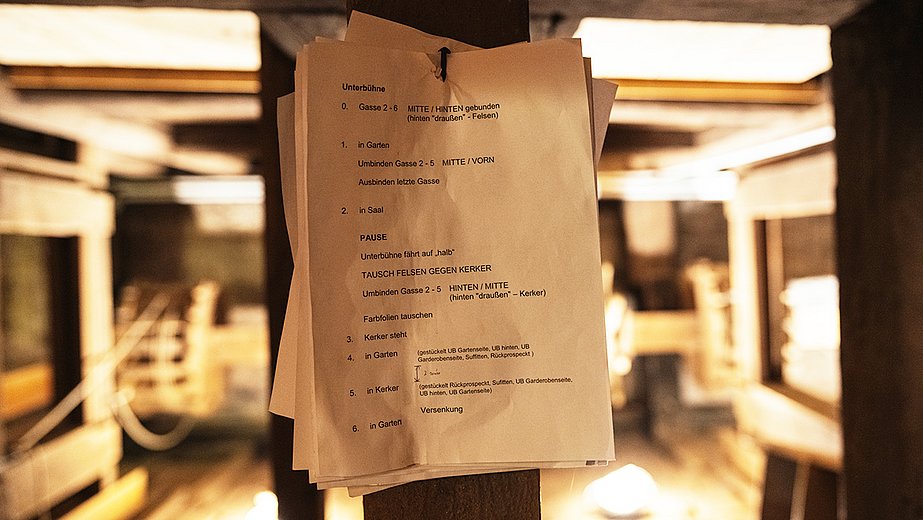 Unterbühne
0. Gasse 2 - 6 MITTE / HINTEN gebunden
(hinten "draußen" - Felsen)
1. in Garten
Umbinden Gasse 2 - 5 MITTE / VORN
Ausbinden letzte Gasse
2. in Saal
PAUSE
Unterbühne fährt auf „halb“
TAUSCH FELSEN GEGEN KERKER
Umbinden Gasse 2 - 5 HINTEN / MITTE
(hinten "draußen" – Kerker)
Farbfolien tauschen
3. Kerker steht
4. in Garten (gestückelt UB Gartenseite, UB hinten, UB
Garderobenseite, Suffitten, Rückprospekt )
5. in Kerker (gestückelt Rückprospekt, Sufitten, UB Garderobenseite,
UB hinten, UB Gartenseite)
Versenkung
6. in Garten